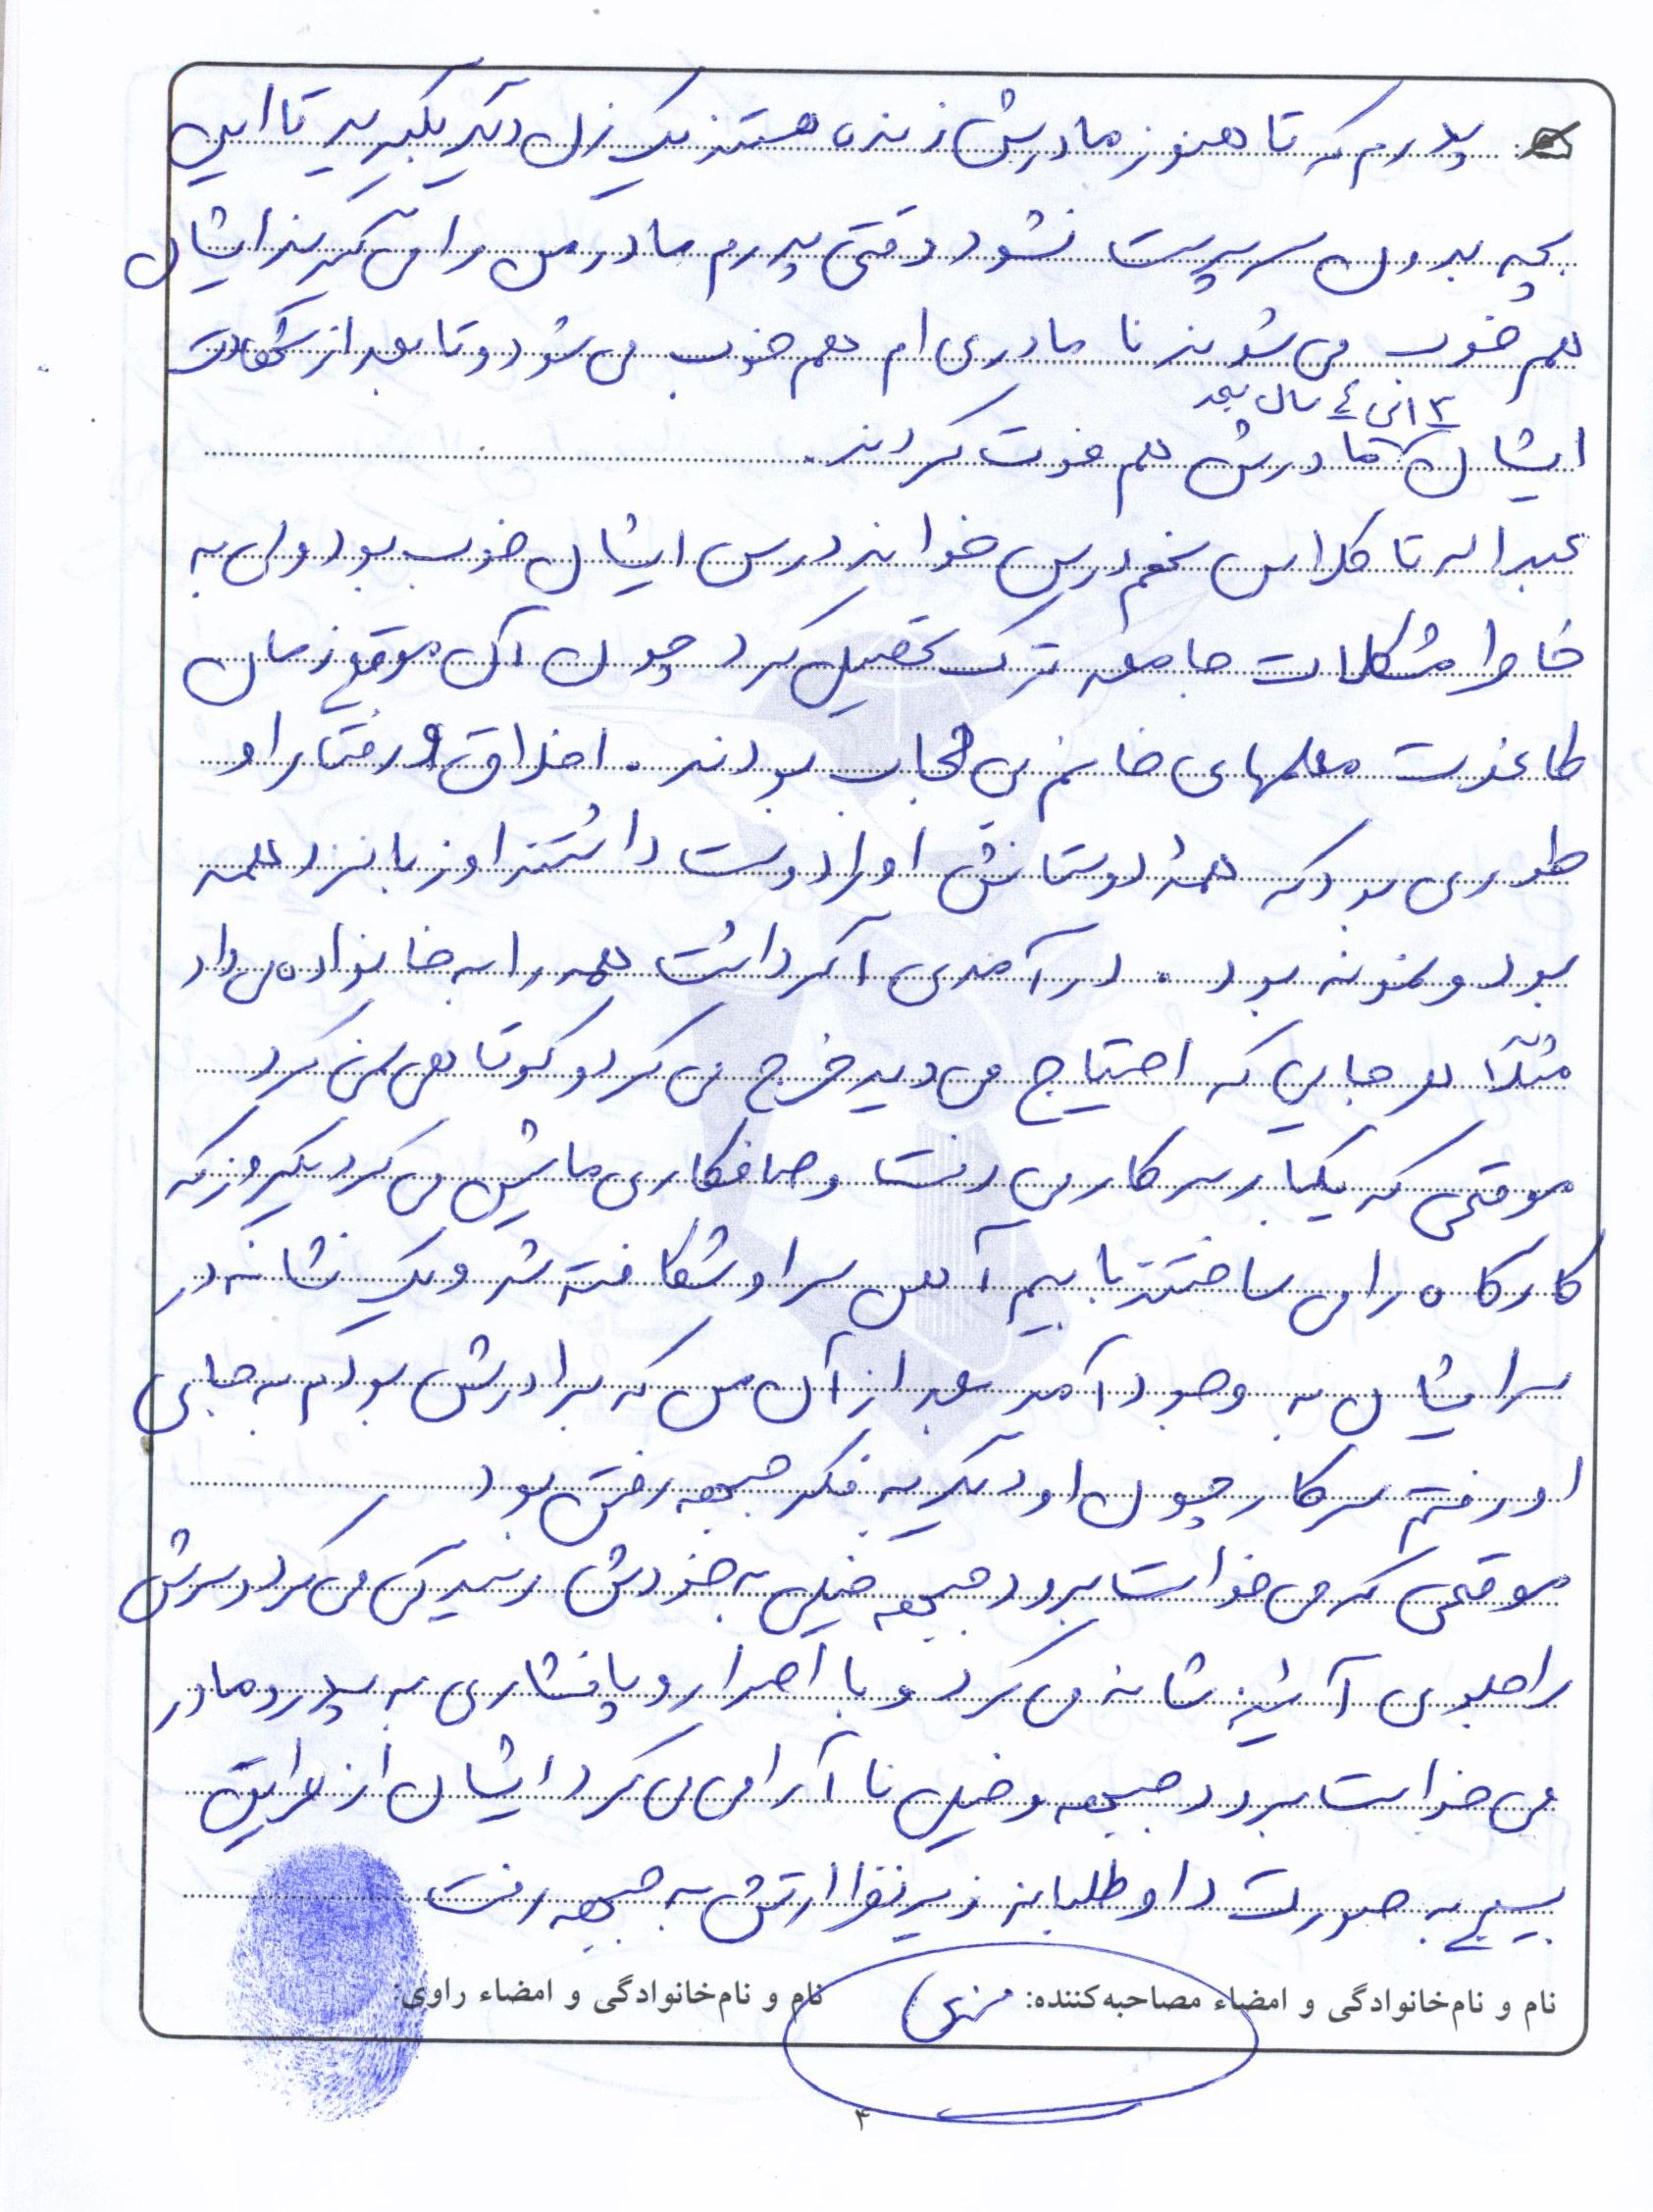 پدرم که تا هنوز مادرش زنده هستند یک زن دیگر بگیرید تا این
بچه بدون سرپرست نشود وقتی پدرم مادر من را می گیرند ایشان
هم خوب می شوند نا مادری ام هم خوب می شود و تا بعد از شهادت
۳ الی ٤ سال بعد
ایشان مادرش هم فوت کردند.
عبداله تا کلاس پنجم درس خواند درس ایشان خوب بود ولی به
خاطر مشکلات جامعه ترک تحصیل کرد چون آن موقع زمان
طاغوت معلمهای خانم بی حجاب بودند. اخلاق و رفتار او
طوری بود که همه دوستانش او را دوست داشتند او زبانزد همه
بود و نمونه بود. درآمدی اگر داشت همه را به خانواده می داد
مثلاً هر جایی که احتیاج می دید خرج می کرد و کوتاهی نمی کرد
موقعی که یکبار سر کار می رفت و صافکاری ماشین می کرد یکروز که
کارگاه را می ساختند با بیم آهن سر او شکافته شد و یک نشانه در
سر ایشان به وجود آمد بعد از آن من که برادرش بودم به جای
او رفتم سرکار چون او دیگر به فکر جبهه رفتن بود
موقعی که می خواست برود جبهه خیلی به خودش رسیدگی می کرد و سرش
را جلوی آئینه شانه می کرد و با اصرار و پافشاری به پدر و مادر
می خواست برود جبهه و خیلی نا آرامی می کرد ایشان از طریق
بسیج به صورت داوطلبانه زیر نظر ارتش به جبهه رفت
نام و نام‌خانوادگی و امضاء مصاحبه‌کننده: نام و نام‌خانوادگی و امضاء راوی:
۴